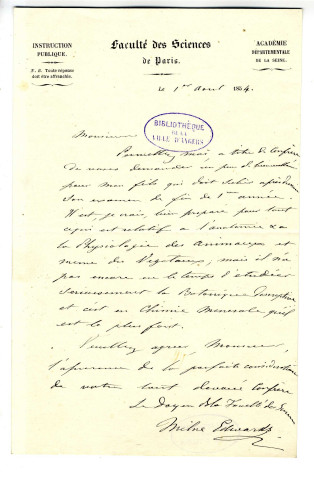 INSTRUCTION
PUBLIQUE.
P. S. Toute réponse
doit être affranchie.
Faculté des Sciences
de Paris.
ACADÉMIE
DÉPARTEMENTALE
DE LA SEINE.
le 1er aout 1854.
Monsieur
BIBLIOTHÈQUE
DE LA
VILLE D'ANGERS
Permettez moi a titre de Confrère
de vous demander un peu de
pour mon fils qui doit subir
Son examen de fin de 1ere année.
Il est je crois, bien préparé pour tout
ce qui est relatif a l'anatomie & a
la Physiologie des Animaux et
meme des Vegetaux, mais il n'a
pas encore eu le temps d'etudier
serieusement la Botanique Descriptive
et c'est en Chimie Minerale qu'il
est le plus fort.
Veuillez agreer Monsieur,
l'assurance de la parfaite consideration
de votre tout devoué Confrère
Le Doyen de la Faculté des Sciences
Milne Edwards